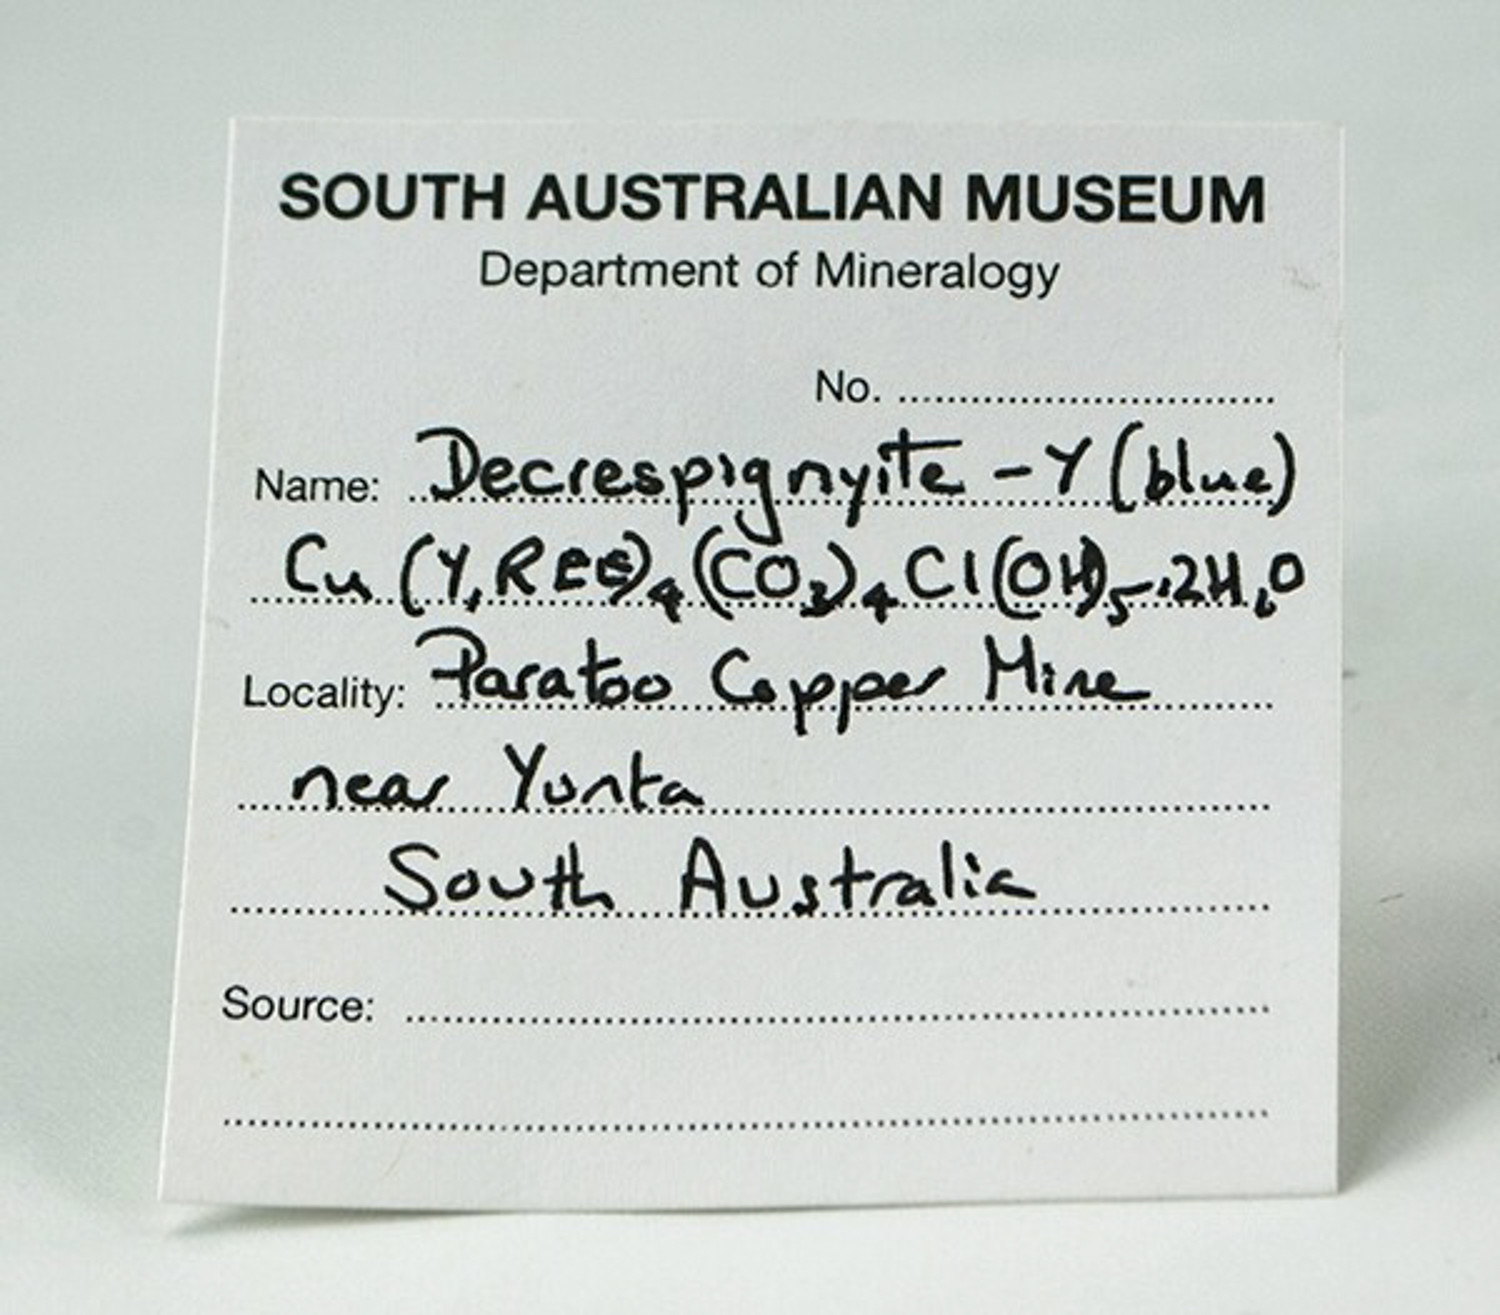 SOUTH AUSTRALIAN MUSEUM
Department of Mineralogy
No. ..............................
Name: Decrespignyite - Y (blue)
Cu (Y,REE)₄(CO₃)₄Cl(OH)₅.2H₂O
Locality: Paratoo Copper Mine
near Yunta
South Australia
Source: